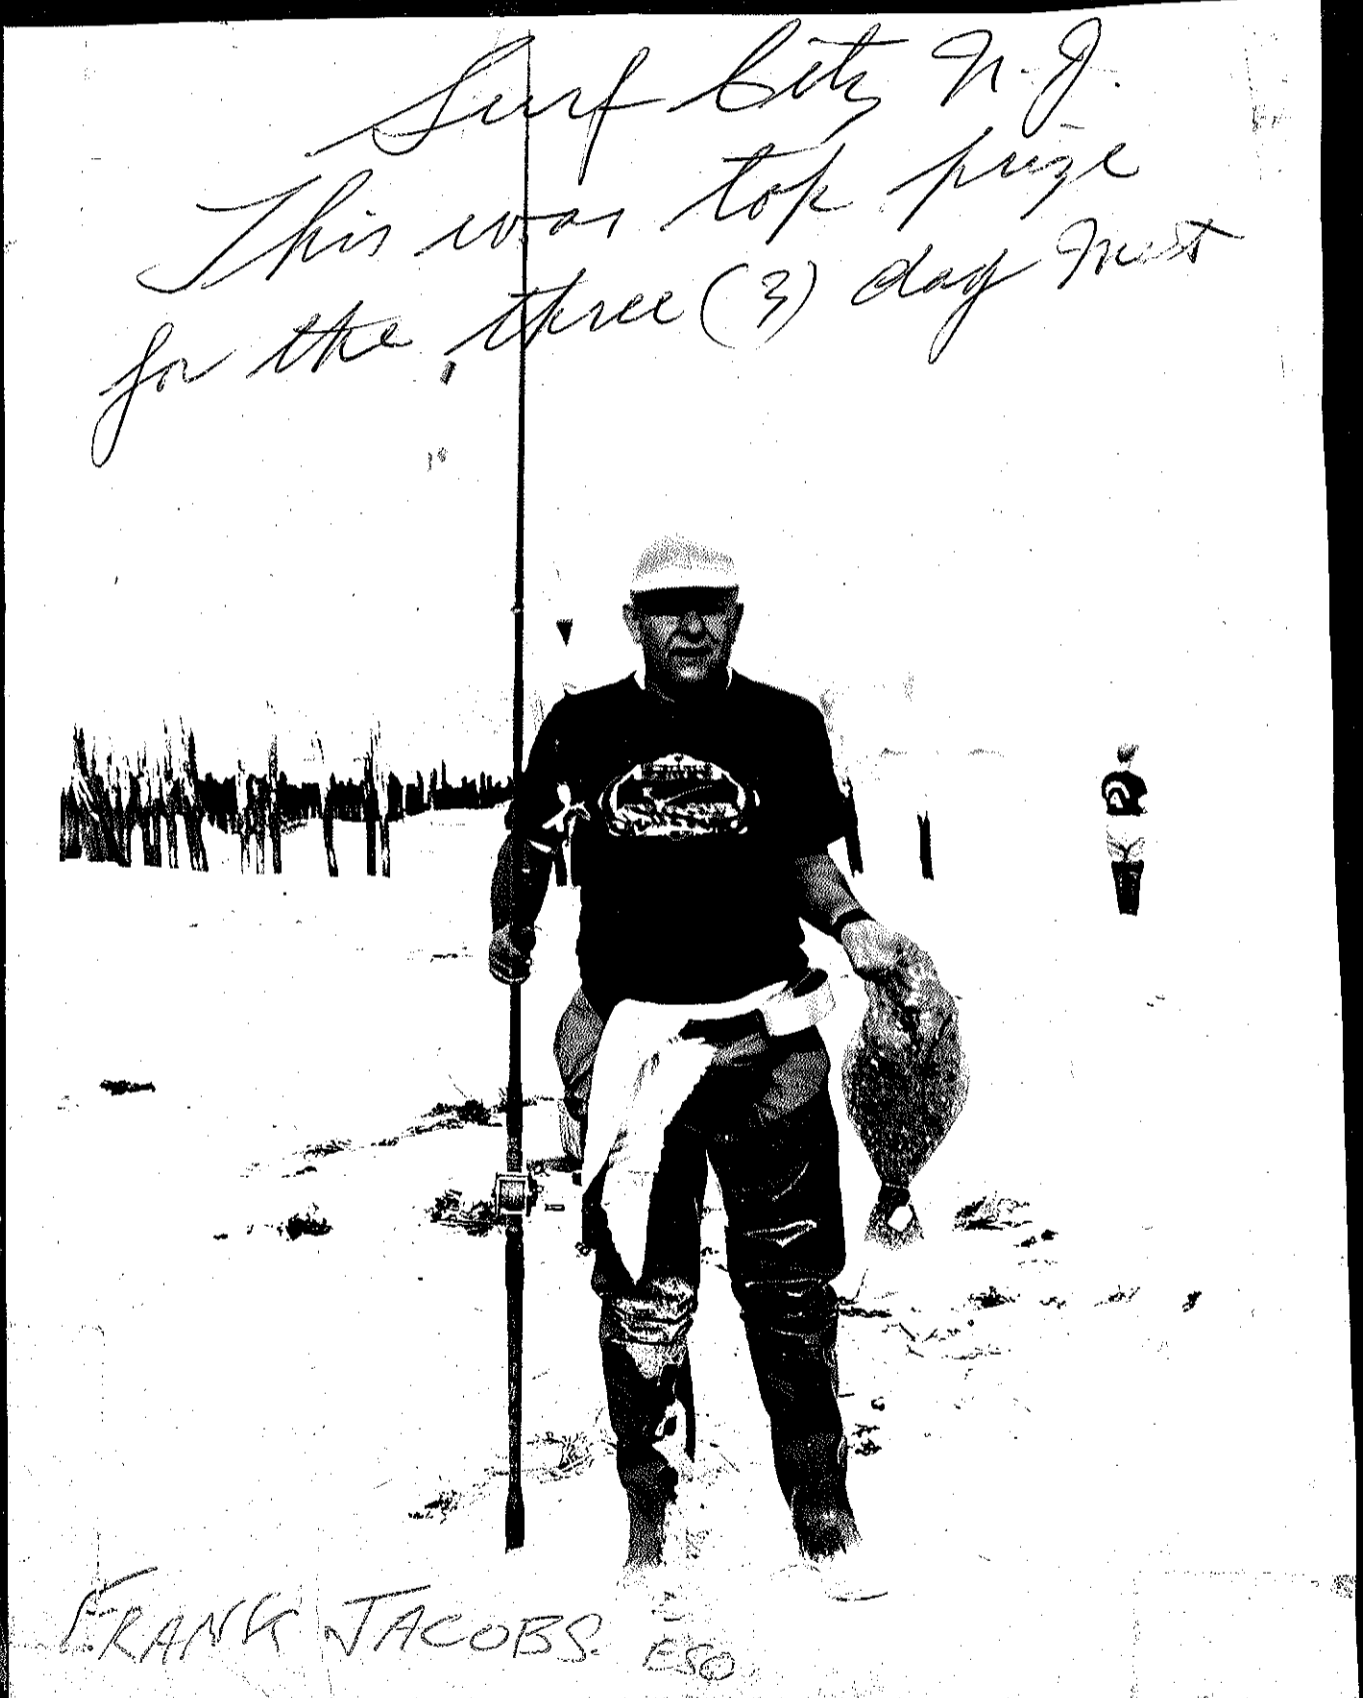 Surf City N.J.
This was top prize
for the three (3) day
FRANK JACOBS. ESQ